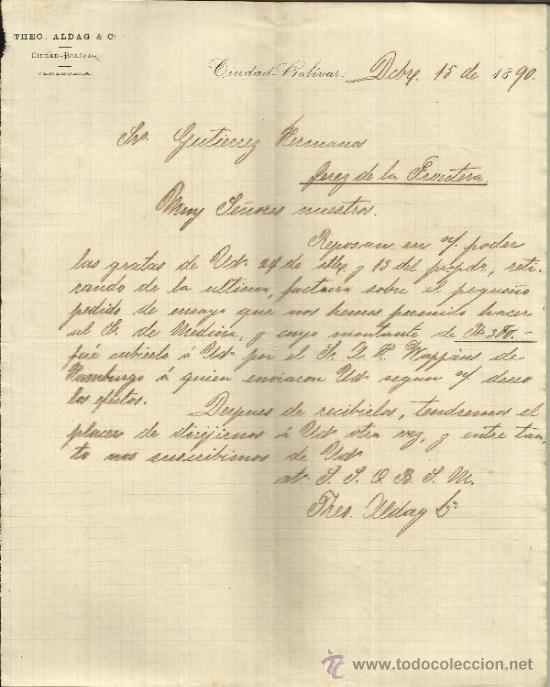 THEO. ALDAG & Cº
CIUDAD-BOLÍVAR,
VENEZUELA.
Ciudad-Bolívar: Dcbre. 15 de 1890.
Srs. Gutierrez Hermanos
Jerez de la Frontera
Muy Señores nuestros.
Reposan en n/. poder
las gratas de Uds 24 de y 13 del ppdo, reti-
rando de la ultima, factura sobre el pequeño
pedido de ensayo que nos hemos permitido hacer
al S. de Medina, y cuyo montante de
fué cubierto á Uds por el S. Wappäus de
Hamburgo á quien enviaron Uds segun n/ deseo
los efectos. Despues de recibirlos, tendremos el
placer de dirijirnos á Uds otra vez, y entre tan-
to nos suscribimos de Uds
at. S. S. Q. B. S. M.
Theo. Aldag Cº
todocoleccion
www.todocoleccion.net